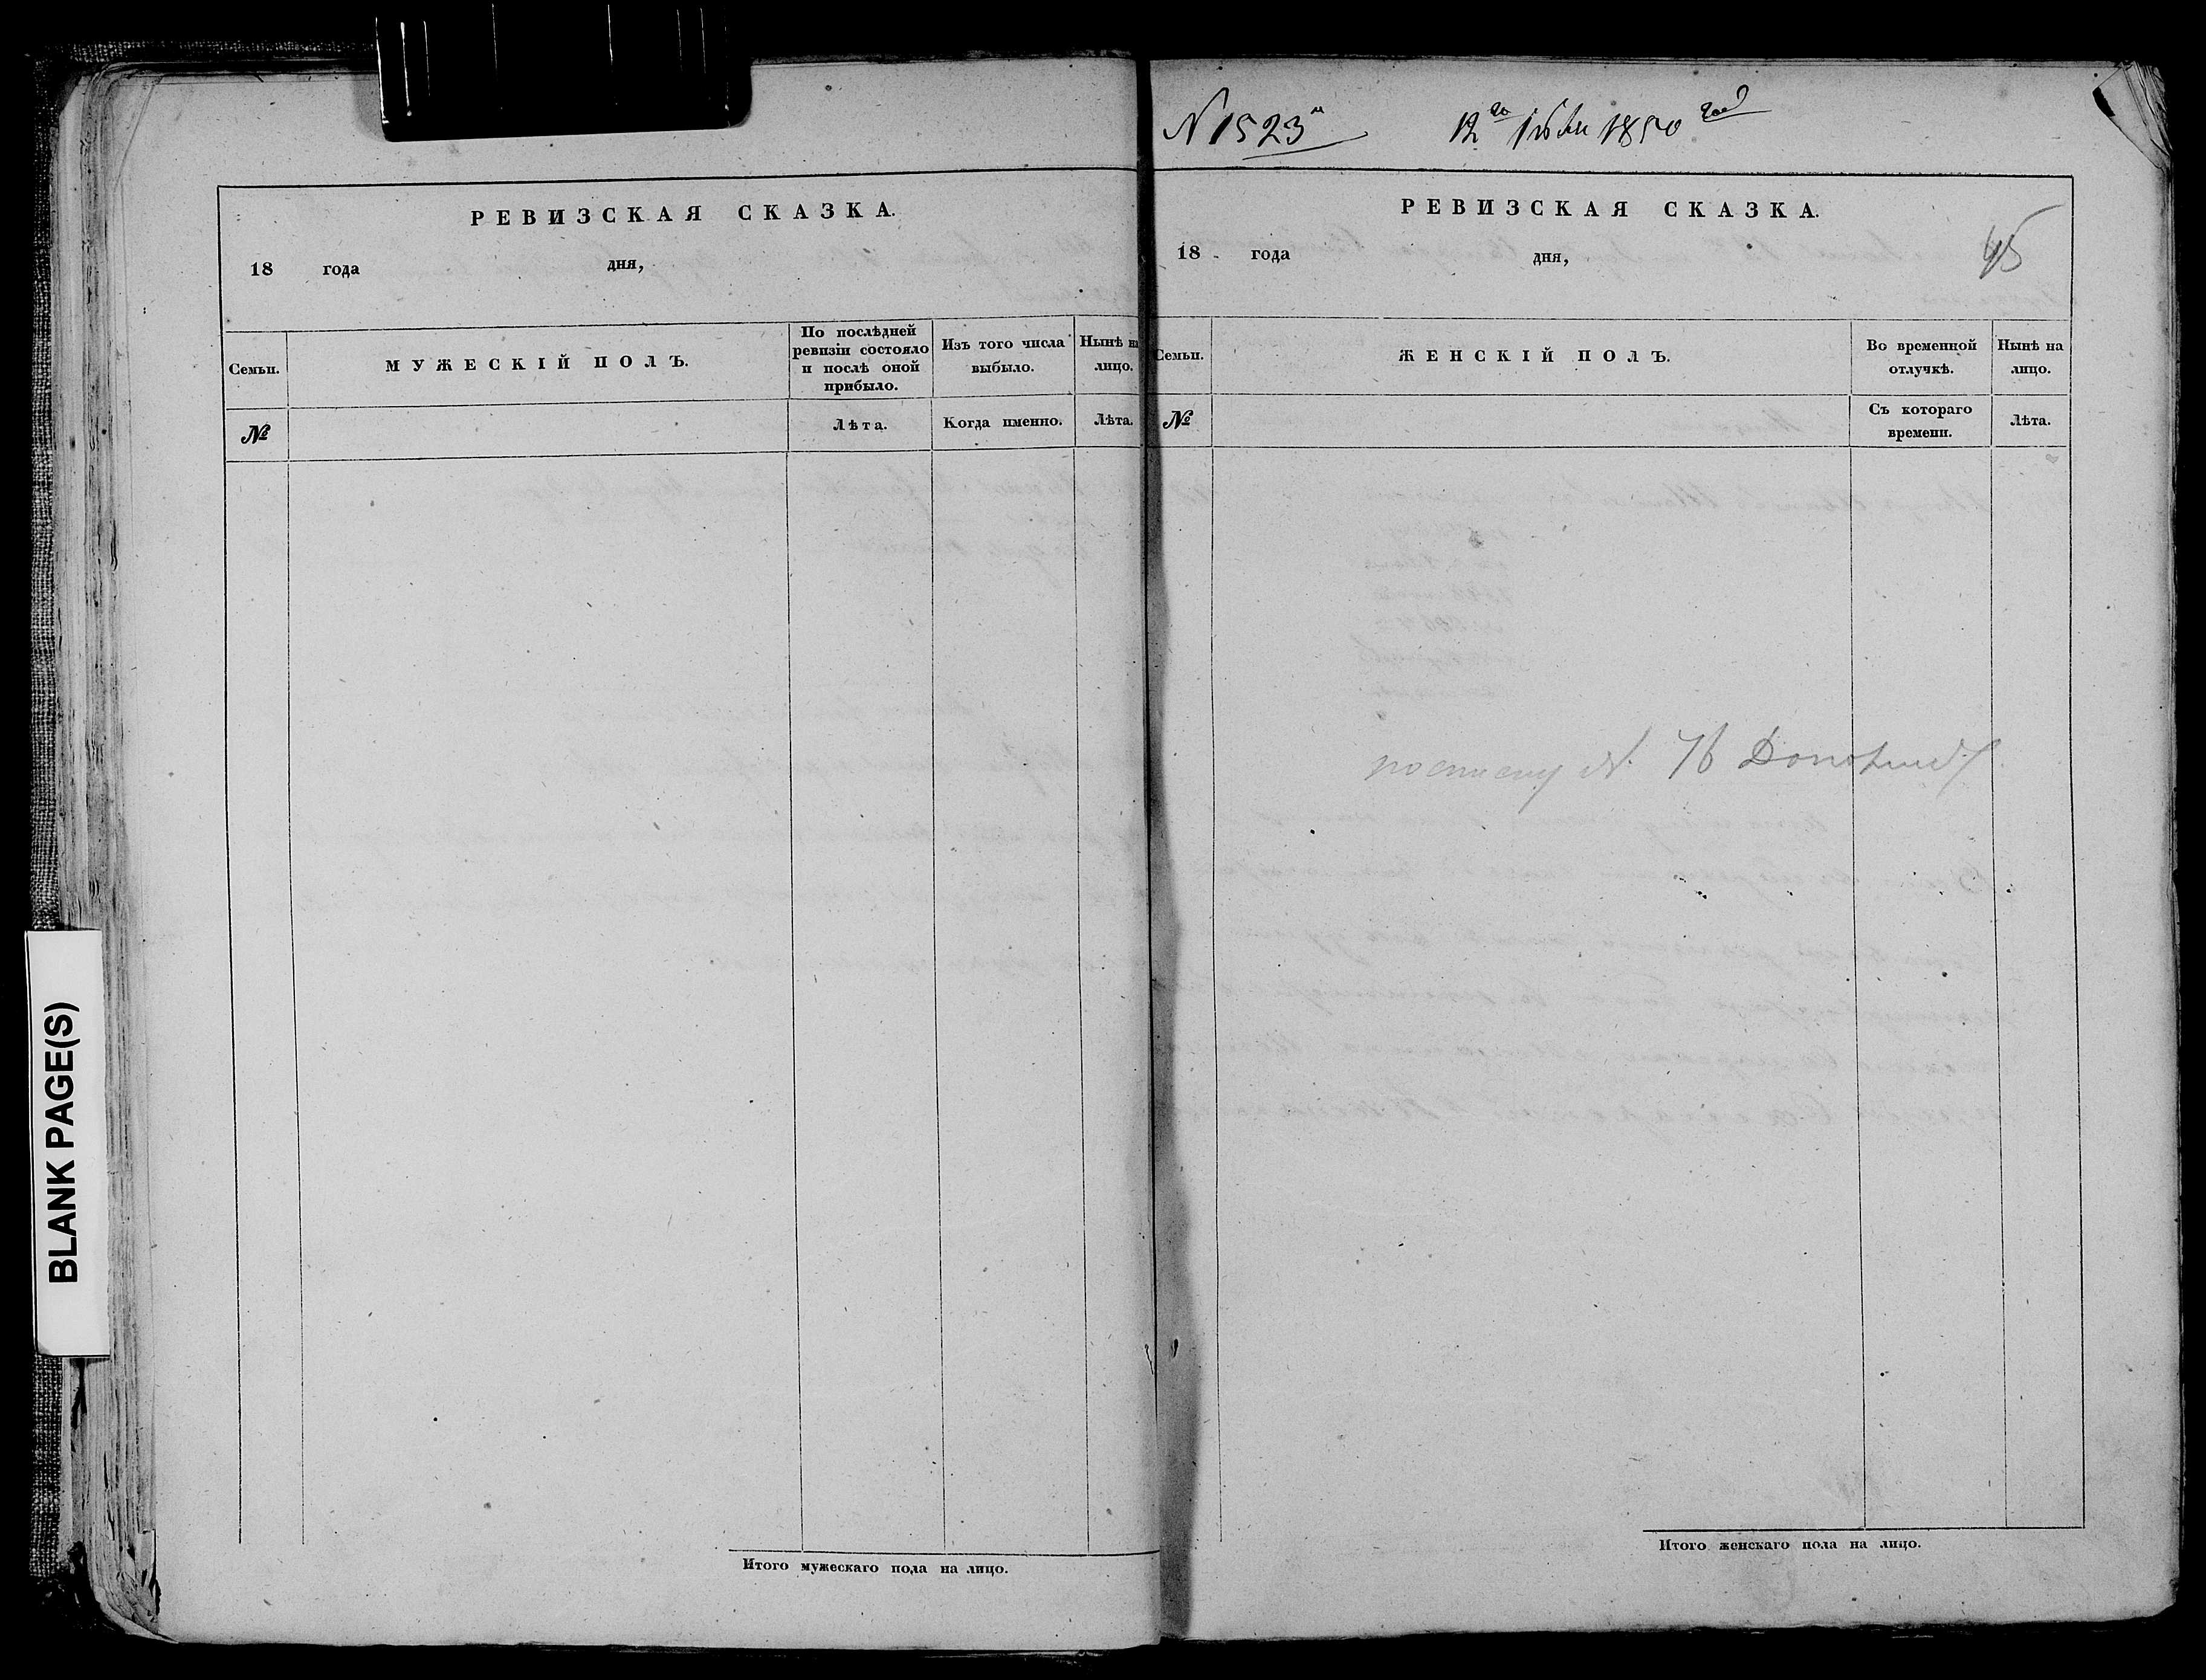 BLANK PAGE(S)
РЕВИЗСКАЯ СКАЗКА.
18 года дня,
Семьи. МУЖЕСКІЙ ПОЛЪ. По послѣдней ревизіи состояло и послѣ оной прибыло. Изъ того числа выбыло. Нынѣ на лицо.
№ Лѣта. Когда именно. Лѣта.
Итого мужескаго пола на лицо.
N 1523 12го 1850 года
РЕВИЗСКАЯ СКАЗКА.
45
18 года дня,
Семьи. ЖЕНСКІЙ ПОЛЪ. Во временной отлучкѣ. Нынѣ на лицо.
№ Съ котораго времени. Лѣта.
N. 76
Итого женскаго пола на лицо.